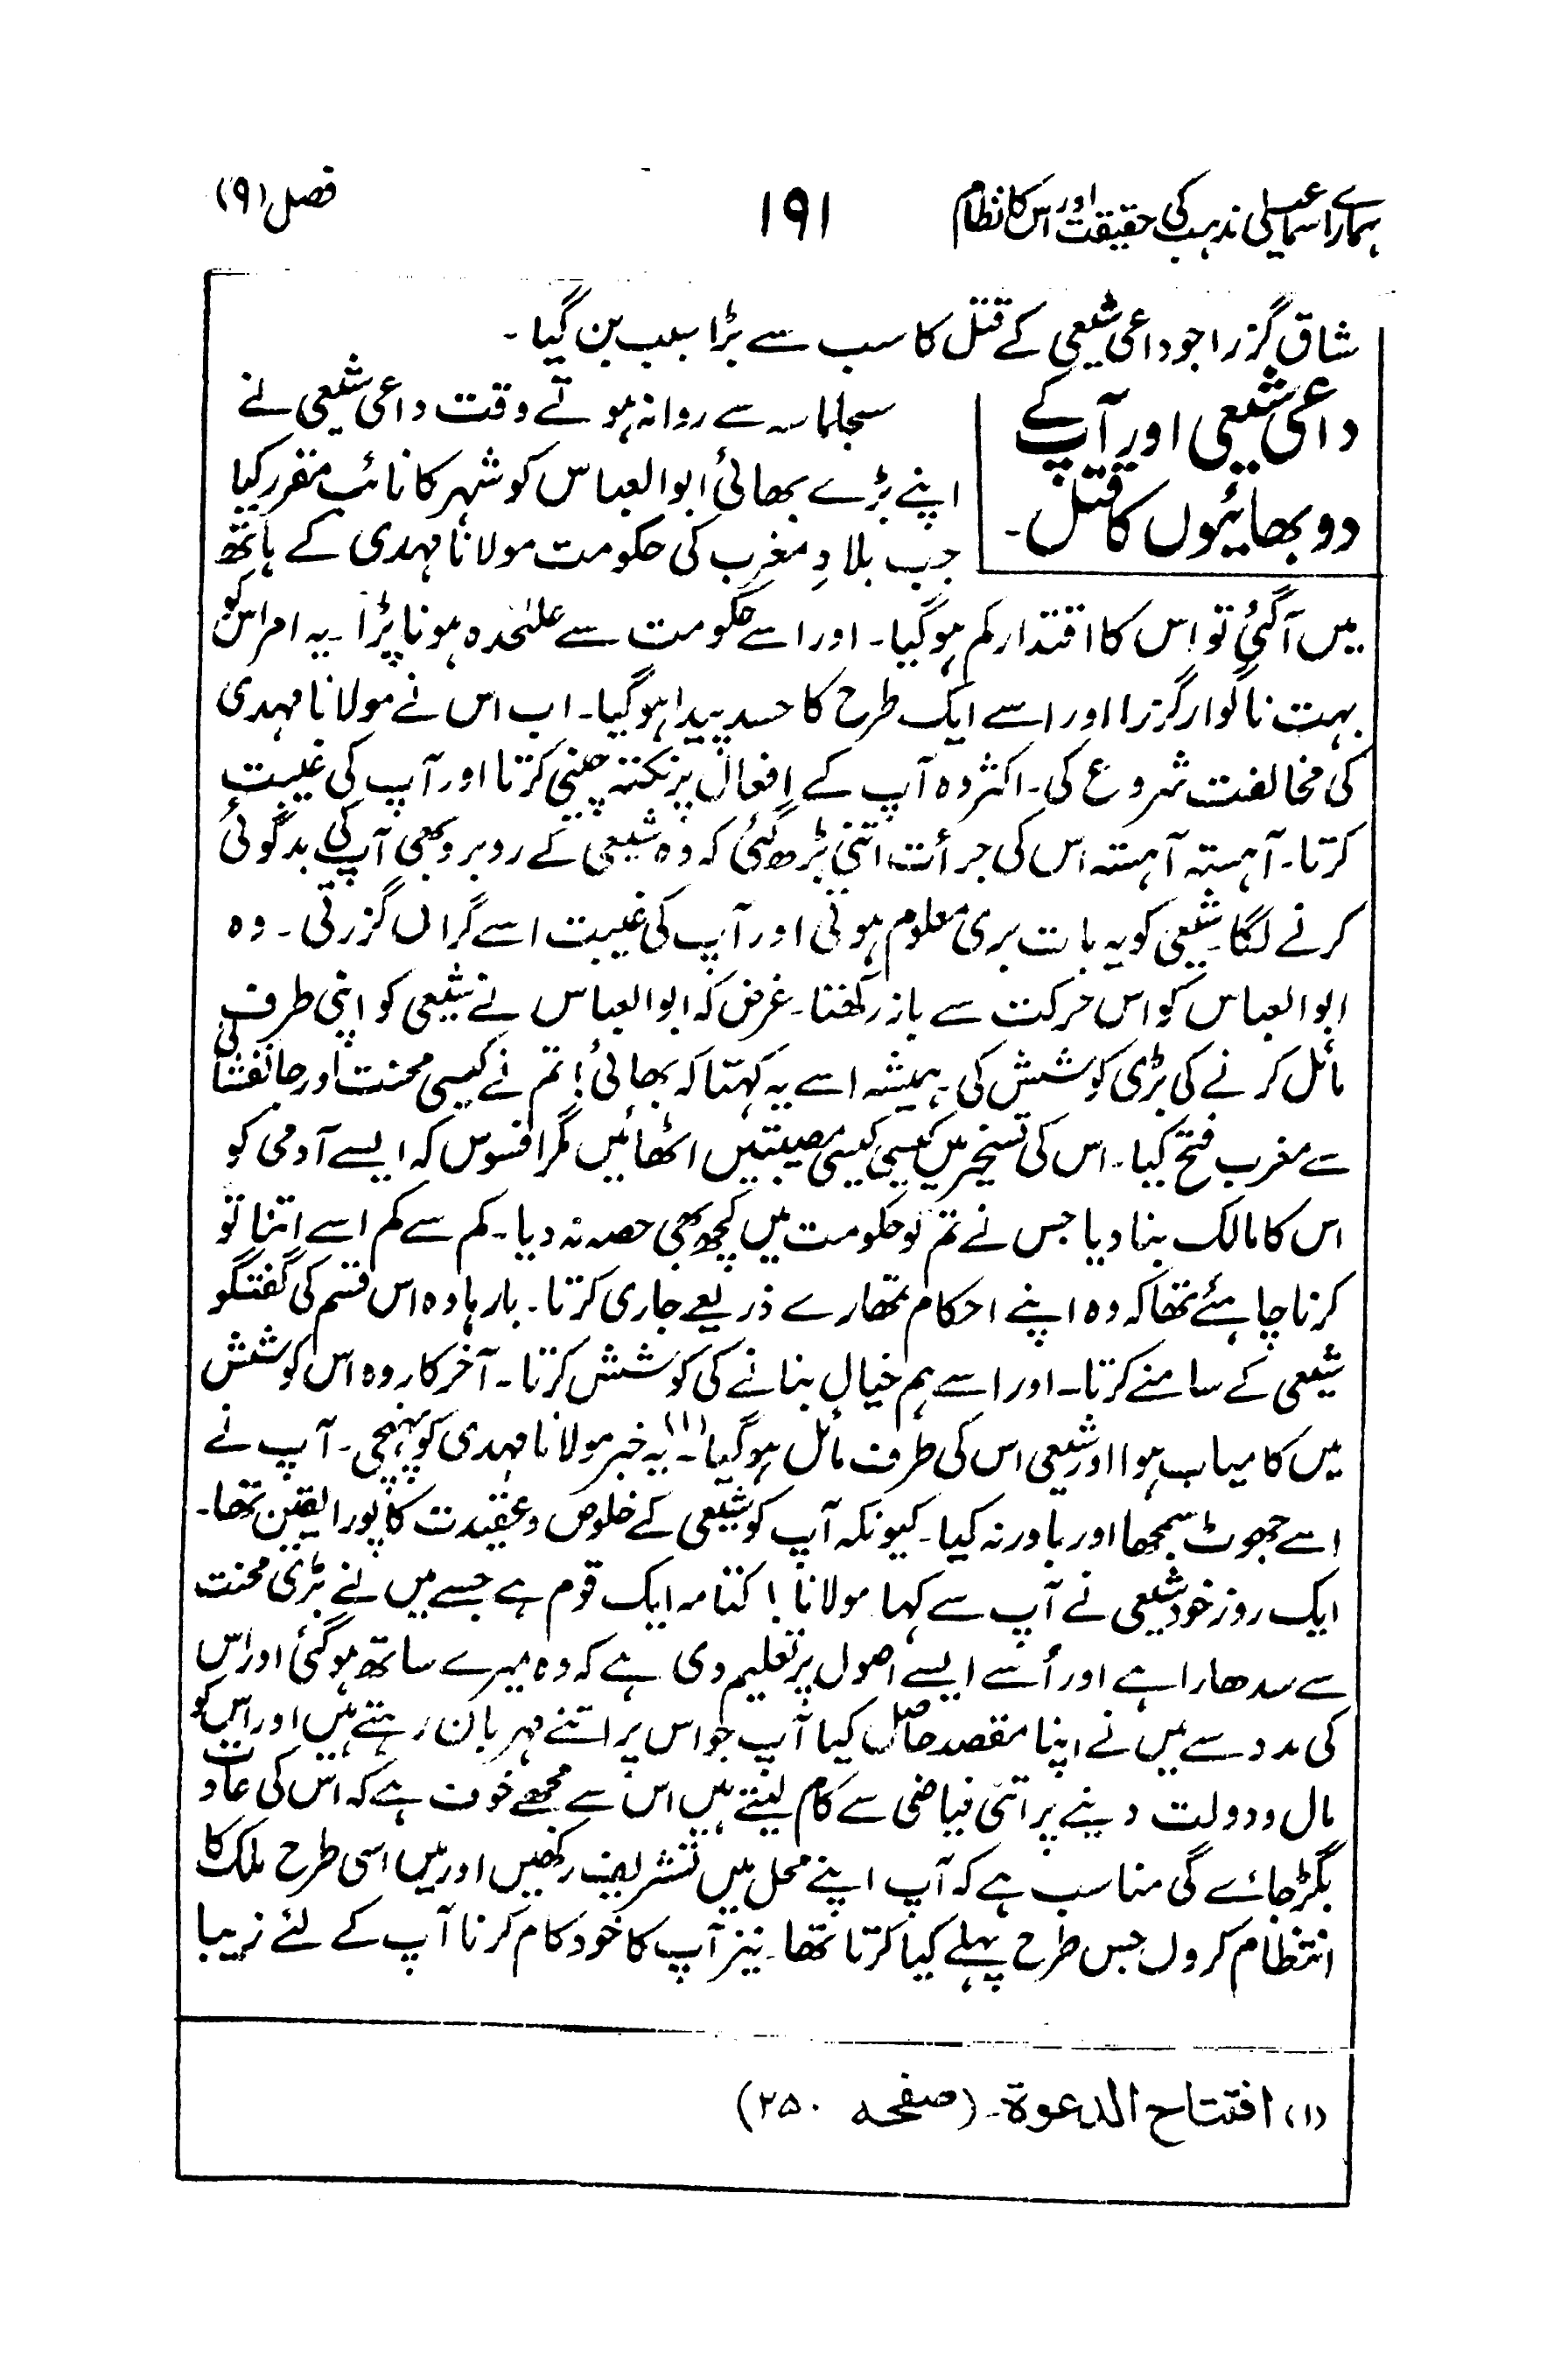 ہمارے اسماعیلی مذہب کی حقیقت اور اس کا نظام
۱۹۱
فصل (۹)
شاق گزرا جو داعی شیعی کے قتل کا سب سے بڑا سبب بن گیا ۔
داعی شیعی اور آپ کے
دو بھائیوں کا قتل ۔
سجلماسہ سے روانہ ہوتے وقت داعی شیعی نے
اپنے بڑے بھائی ابو العباس کو شہر کا نائب مقرر کیا
جب بلادِ مغرب کی حکومت مولانا مہدی کے ہاتھ
میں آگئی تو اس کا اقتدار کم ہوگیا۔ اور اسے حکومت سے علٰحدہ ہونا پڑا ۔ یہ امر اس کو
بہت ناگوار گزرا اور اسے ایک طرح کا حسد پیدا ہوگیا۔ اب اس نے مولانا مہدی
کی مخالفت شروع کی۔ اکثر وہ آپ کے افعال پر نکتہ چینی کرتا اور آپ کی غیبت
کرتا۔ آہستہ آہستہ اس کی جرأت اتنی بڑھ گئی کہ وہ شیعی کے روبرو بھی آپ کی بدگوئی
کرنے لگا۔ شیعی کو یہ بات بری معلوم ہوتی اور آپ کی غیبت اسے گراں گزرتی ۔ وہ
ابو العباس کو اس حرکت سے باز رکھتا ۔ غرض کہ ابو العباس نے شیعی کو اپنی طرف
مائل کرنے کی بڑی کوشش کی۔ ہمیشہ اسے یہ کہتا کہ بھائی! تم نے کیسی محنت اور جانفشانی
سے مغرب فتح کیا۔ اس کی تسخیر میں کیسی کیسی مصیبتیں اٹھائیں مگر افسوس کہ ایسے آدمی کو
اس کا مالک بنا دیا جس نے تم کو حکومت میں کچھ بھی حصہ نہ دیا۔ کم سے کم اسے اتنا تو
کرنا چاہئے تھا کہ وہ اپنے احکام تمھارے ذریعے جاری کرتا۔ بارہا وہ اس قسم کی گفتگو
شیعی کے سامنے کرتا۔ اور اسے ہم خیال بنانے کی کوشش کرتا۔ آخر کار وہ اس کوشش
میں کامیاب ہوا اور شیعی اس کی طرف مائل ہوگیا۔(۱) یہ خبر مولانا مہدی کو پہنچی ۔ آپ نے
اسے جھوٹ سمجھا اور باور نہ کیا۔ کیونکہ آپ کو شیعی کے خلوص و عقیدت کا پورا یقین تھا۔
ایک روز خود شیعی نے آپ سے کہا مولانا! کتامہ ایک قوم ہے جسے میں نے بڑی محنت
سے سدھارا ہے اور اُسے ایسے اصول پر تعلیم دی ہے کہ وہ میرے ساتھ ہوگئی اور اس
کی مدد سے میں نے اپنا مقصد حاصل کیا آپ جو اس پر اتنے مہربان رہتے ہیں اور اس کو
مال و دولت دینے پر اتنی فیاضی سے کام لیتے ہیں اس سے مجھے خوف ہے کہ اس کی عادت
بگڑ جائے گی مناسب ہے کہ آپ اپنے محل میں تشریف رکھیں اور میں اسی طرح ملک کا
انتظام کروں جس طرح پہلے کیا کرتا تھا۔ نیز آپ کا خود کام کرنا آپ کے لئے زیبا
(۱) افتتاح الدعوة۔ (صفحہ ۲۵۰)